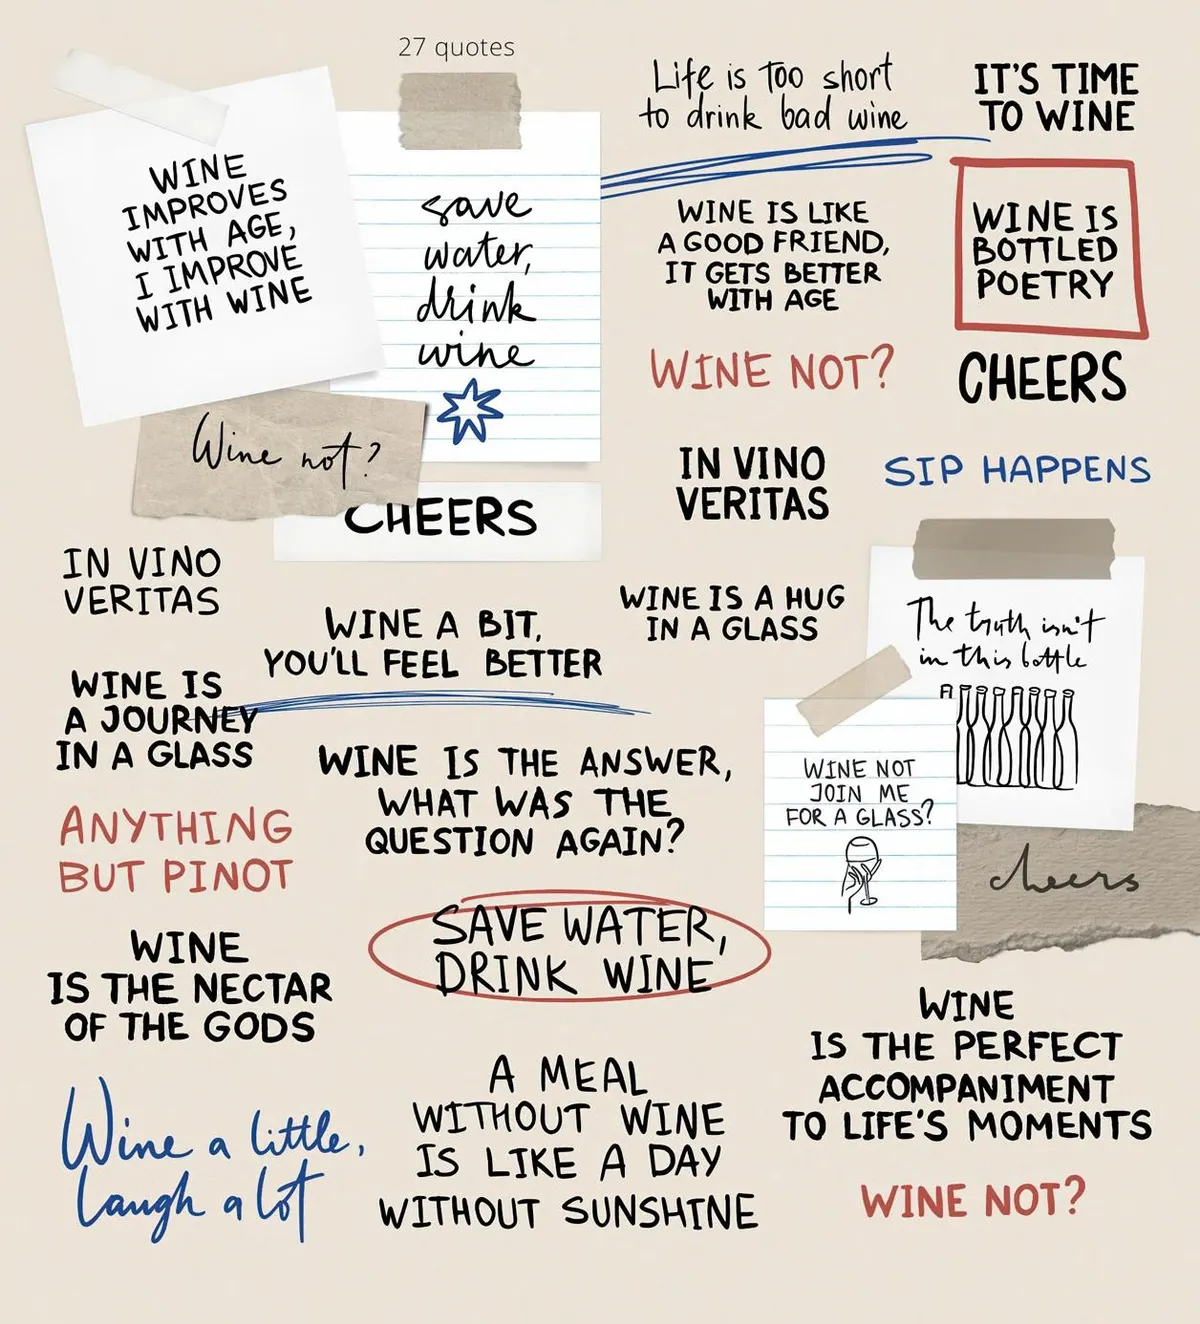 27 quotes
WINE
IMPROVES
WITH AGE,
I IMPROVE
WITH WINE
save
water,
drink
wine
Wine not?
CHEERS
Life is Too short
to drink bad wine
IT'S TIME
TO WINE
WINE IS LIKE
A GOOD FRIEND,
IT GETS BETTER
WITH AGE
WINE IS
BOTTLED
POETRY
WINE NOT?
CHEERS
IN VINO
VERITAS
SIP HAPPENS
IN VINO
VERITAS
WINE A BIT,
YOU'LL FEEL BETTER
WINE IS A HUG
IN A GLASS
The truth isn't
in this bottle
WINE IS
A JOURNEY
IN A GLASS
WINE IS THE ANSWER,
WHAT WAS THE
QUESTION AGAIN?
WINE NOT
JOIN ME
FOR A GLASS?
cheers
ANYTHING
BUT PINOT
SAVE WATER,
DRINK WINE
WINE
IS THE NECTAR
OF THE GODS
WINE
IS THE PERFECT
ACCOMPANIMENT
TO LIFE'S MOMENTS
Wine a little,
laugh a lot
A MEAL
WITHOUT WINE
IS LIKE A DAY
WITHOUT SUNSHINE
WINE NOT?